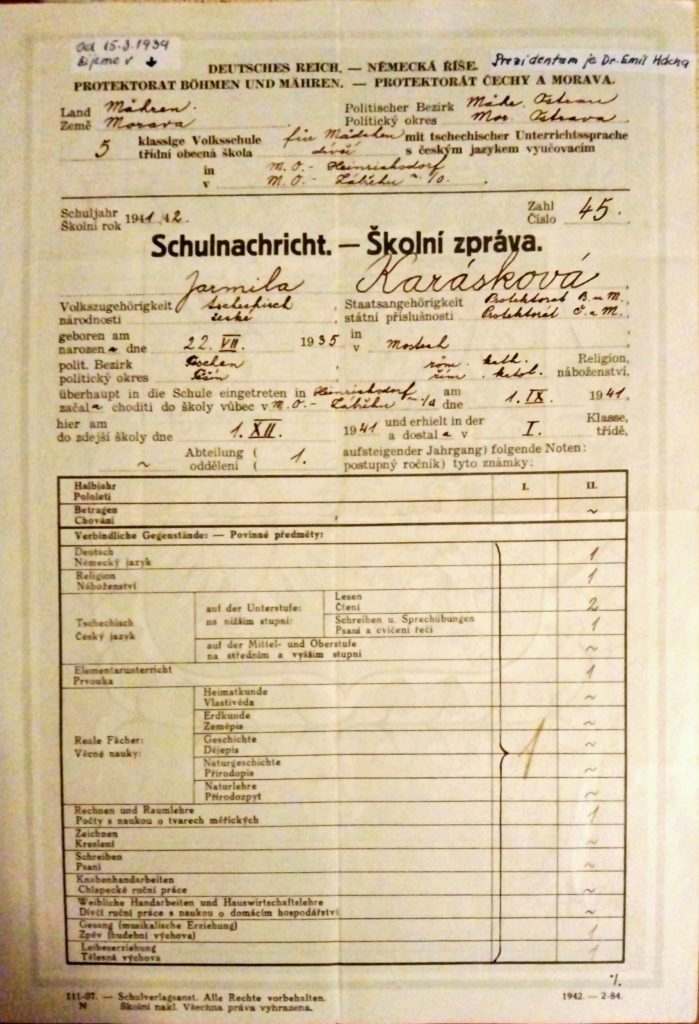 od 15.3.1939
žijeme v ↓
Prezidentem je Dr. Emil Hácha
DEUTSCHES REICH. — NĚMECKÁ ŘÍŠE.
PROTEKTORAT BÖHMEN UND MÄHREN. — PROTEKTORÁT ČECHY A MORAVA.
Land Mähren. Politischer Bezirk Mähr. Ostrau
Země Morava Politický okres Mor. Ostrava
5 klassige Volksschule für Mädchen mit tschechischer Unterrichtssprache
třídní obecná škola dívčí s českým jazykem vyučovacím
in M. O. - Heinrichsdorf
v M. O. - Zábřehu n/O.
Schuljahr 1941/42. Zahl 45.
Školní rok Číslo
Schulnachricht. — Školní zpráva.
Jarmila Karásková
Volkszugehörigkeit tschechisch Staatsangehörigkeit Protektorat B. u. M.
národnosti české státní příslušnosti Protektorát Č. a M.
geboren am 22. VII. 1935 in
narozen a dne v Mostech
polit. Bezirk Teschen röm. kath. Religion,
politický okres Těšín řím. katol. náboženství,
überhaupt in die Schule eingetreten in Heinrichsdorf am 1. IX. 1941,
začala choditi do školy vůbec v M. O. - Zábřehu n/O dne
hier am 1. XII. 1941 und erhielt in der I. Klasse,
do zdejší školy dne a dostal a v třídě,
~ Abteilung ( 1. aufsteigender Jahrgang) folgende Noten:
oddělení ( postupný ročník) tyto známky:
Halbjahr I. II.
Pololetí
Betragen ~
Chování
Verbindliche Gegenstände: — Povinné předměty:
Deutsch 1
Německý jazyk
Religion 1
Náboženství
Tschechisch
Český jazyk
auf der Unterstufe:
na nižším stupni:
Lesen 2
Čtení
Schreiben u. Sprechübungen 1
Psaní a cvičení řeči
auf der Mittel- und Oberstufe ~
na středním a vyšším stupni
Elementarunterricht 1
Prvouka
Reale Fächer:
Věcné nauky:
Heimatkunde ~
Vlastivěda
Erdkunde ~
Zeměpis
Geschichte ~
Dějepis
Naturgeschichte ~
Přírodopis
Naturlehre ~
Přírodozpyt
1
Rechnen und Raumlehre 1
Počty s naukou o tvarech měřických
Zeichnen ~
Kreslení
Schreiben ~
Psaní
Knabenhandarbeiten ~
Chlapecké ruční práce
Weibliche Handarbeiten und Hauswirtschaftslehre ~
Dívčí ruční práce s naukou o domácím hospodářství
Gesang (musikalische Erziehung) 1
Zpěv (hudební výchova)
Leibeserziehung 1
Tělesná výchova
·/.
111-07. — Schulverlagsanst. Alle Rechte vorbehalten. 1942. — 2-84.
N Školní nakl. Všechna práva vyhrazena.